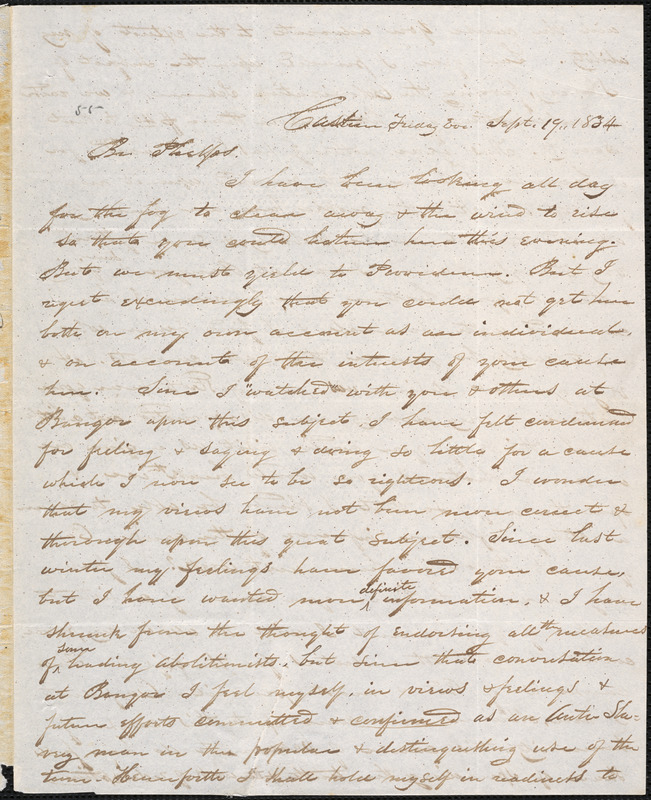 55
Castine Friday Eve. Sept. 19., 1834
Br. Phelps.
I have been looking all day
for the fog to clear away & the wind to rise
so that you could hasten here this evening.
But we must yield to Providence. But I
regret exceedingly that you could not get here
both on my own account as an individual,
& on account of the interests of your cause
here. Since I "watched" with you & others at
Bangor upon this subject, I have felt condemned
for feeling & saying & doing so little for a cause
which I now see to be so righteous. I wonder
that my views have not been more correct &
thorough upon this great subject. Since last
winter my feelings have favored your cause,
but I have wanted more definite information, & I have
shrunk from the thought of endorsing all the measures
of some leading abolitionists; but since that conversation
at Bangor I feel myself, in views & feelings &
future efforts committed & confirmed as an Anti-Sla-
very man in the popular & distinguishing use of the
term. Henceforth I shall hold myself in readiness to